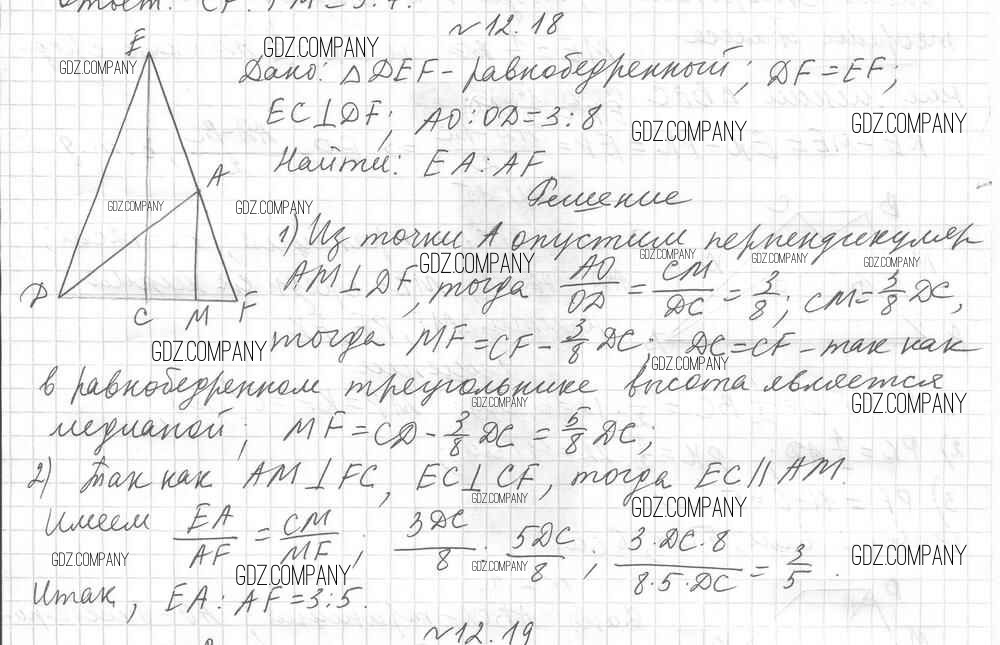 Ответ: CF:FM=5:4.
№12.18
Дано: △DEF - равнобедренный; DF=EF;
EC⊥DF; AO:OD=3:8
Найти: EA:AF
Решение
1) Из точки A опустим перпендикуляр
AM⊥DF, тогда AO/OD = CM/DC = 3/8; CM=3/8 DC,
тогда MF=CF-3/8 DC; DC=CF-так как
в равнобедренном треугольнике высота является
медианой; MF=CD-3/8 DC=5/8 DC;
2) Так как AM⊥FC, EC⊥CF, тогда EC||AM.
Имеем EA/AF = CM/MF; 3DC/8 : 5DC/8; 3·DC·8/8·5·DC = 3/5.
Итак, EA:AF=3:5.
№12.19
E
A
D
C
M
F
GDZ.COMPANY
GDZ.COMPANY
GDZ.COMPANY
GDZ.COMPANY
GDZ.COMPANY
GDZ.COMPANY
GDZ.COMPANY
GDZ.COMPANY
GDZ.COMPANY
GDZ.COMPANY
GDZ.COMPANY
GDZ.COMPANY
GDZ.COMPANY
GDZ.COMPANY
GDZ.COMPANY
GDZ.COMPANY
GDZ.COMPANY
GDZ.COMPANY
GDZ.COMPANY
GDZ.COMPANY
GDZ.COMPANY